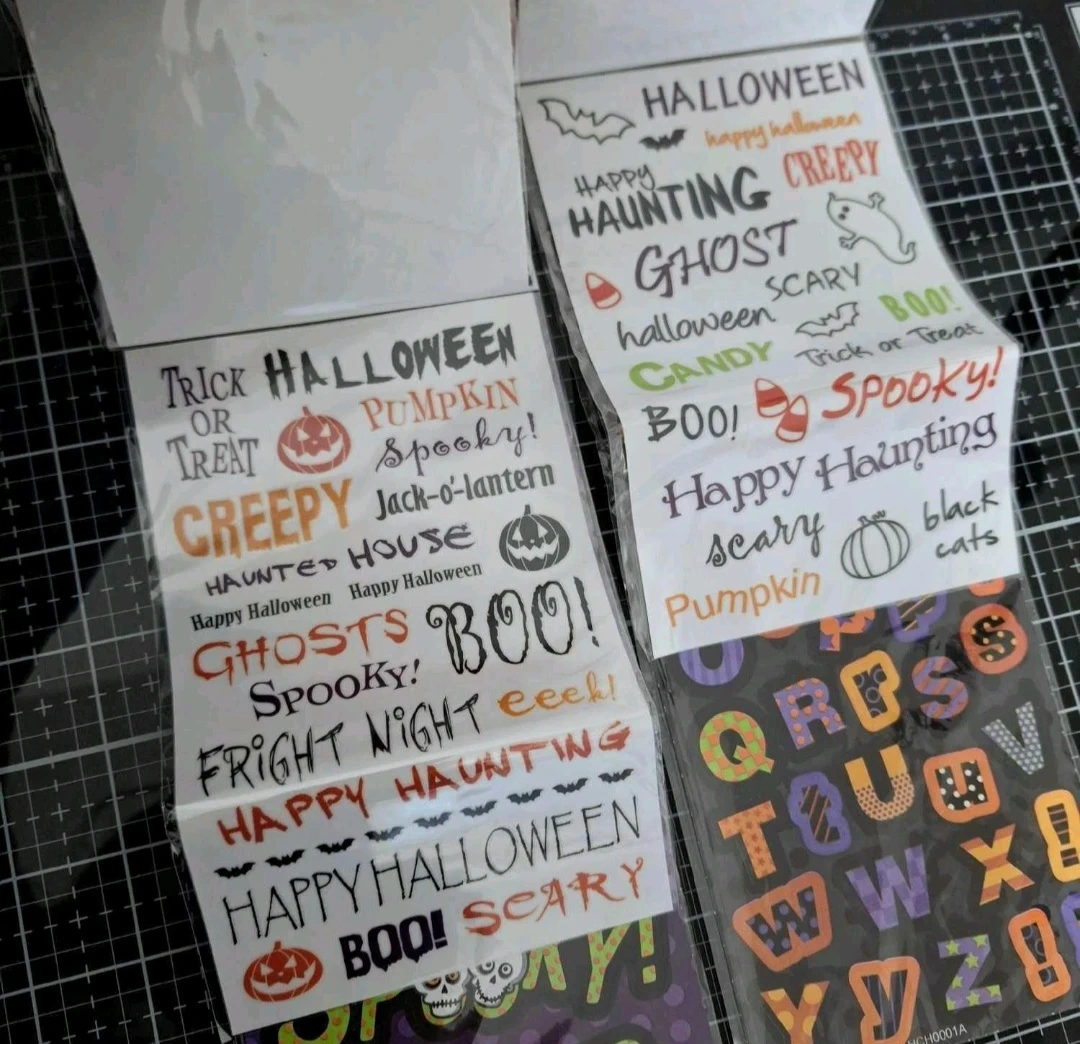 TRICK
OR
TREAT
HALLOWEEN
PUMPKIN
Spooky!
CREEPY
Jack-o'-lantern
HAUNTED HOUSE
Happy Halloween
Happy Halloween
GHOSTS
BOO!
SPOOKY!
eeek!
FRiGHT NiGHT
HAPPY HAUNTING
HAPPY HALLOWEEN
BOO!
SCARY
HALLOWEEN
happy halloween
HAPPY
HAUNTING
CREEPY
GHOST
SCARY
halloween
BOO!
CANDY
Trick or Treat
BOO!
SPOOKY!
Happy Haunting
scary
black
cats
Pumpkin
S
Q R R S
T U U V
W W X !
Y Y Z !
HCH0001A